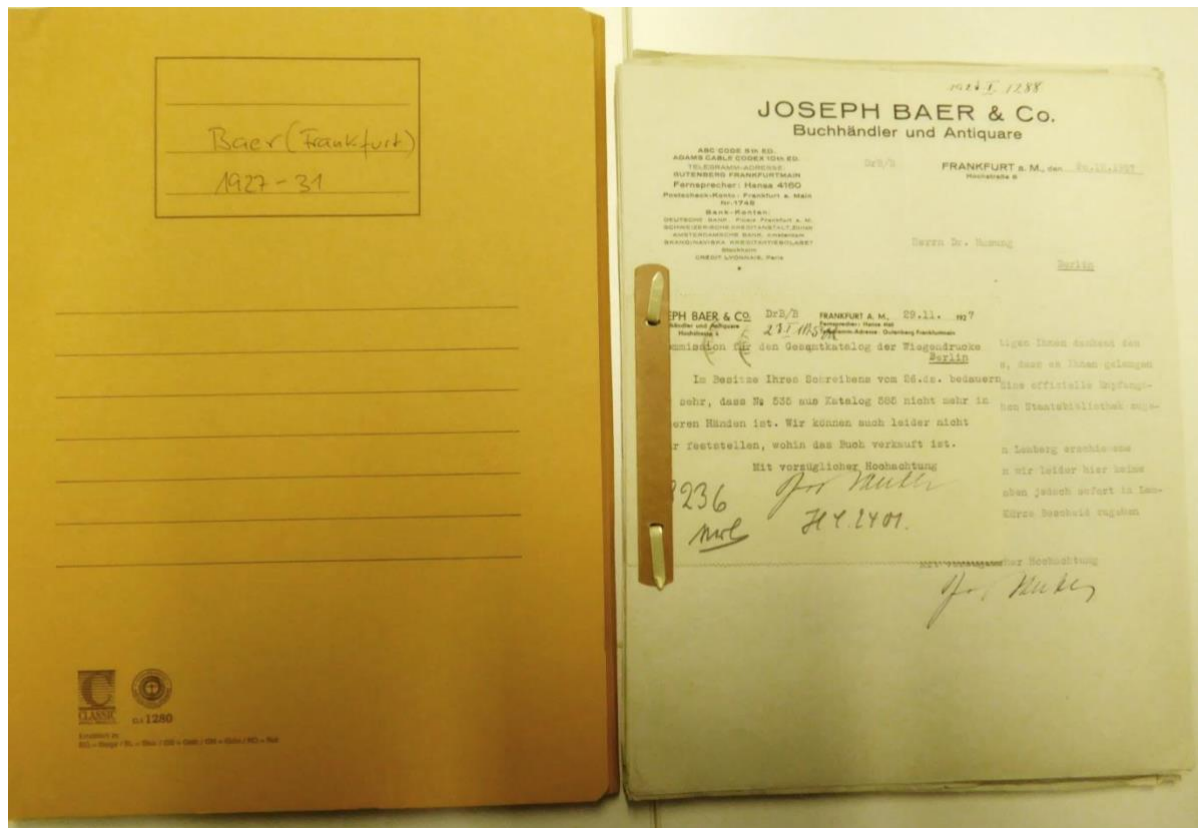 Baer (Frankfurt)
1927-31
CLASSIC
1280
1288
JOSEPH BAER & Co.
Buchhändler und Antiquare
ABC CODE 5th ED.
ADAMS CABLE CODEX 10th ED.
TELEGRAMM-ADRESSE:
GUTENBERG FRANKFURTMAIN
Fernsprecher: Hansa 4160
Postscheck-Konto: Frankfurt a. Main
Nr. 1748
Bank-Konten:
DEUTSCHE BANK, Filiale Frankfurt a. M.
SCHWEIZERISCHE KREDITANSTALT, Zürich
AMSTERDAMSCHE BANK, Amsterdam
SKANDINAVISKA KREDITAKTIEBOLAGET
Stockholm
CREDIT LYONNAIS, Paris
DrB/B
FRANKFURT a. M., den
Hochstraße 6
Herrn Dr. Husung
Berlin
EPH BAER & Co.
DrB/B
FRANKFURT A. M., 29.11. 1927
Buchhändler und Antiquare
Fernsprecher: Hansa
Hochstrasse 6
Telegramm-Adresse: Gutenberg Frankfurtmain
ommission für den Gesamtkatalog der Wiegendrucke
Berlin
Im Besitze Ihres Schreibens vom 26.ds. bedauern
sehr, dass № 535 aus Katalog 585 nicht mehr in
eren Händen ist. Wir können auch leider nicht
r feststellen, wohin das Buch verkauft ist.
Mit vorzüglicher Hochachtung
236
tigen Ihnen dankend den
e, dass es Ihnen gelungen
eine offizielle Empfangs-
hen Staatsbibliothek zuge-
n Lemberg erschienene
n wir leider hier keine
aben jedoch sofort in Lem-
Kürze Bescheid zugehen
Mit vorzüglicher Hochachtung